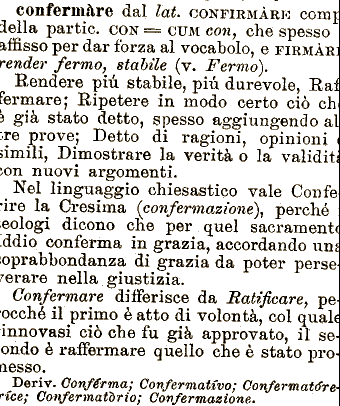 confermàre dal lat. CONFIRMÀRE comp
della partic. CON = CUM con, che spesso
affisso per dar forza al vocabolo, e FIRMÀRE
render fermo, stabile (v. Fermo).
Rendere piú stabile, piú durevole, Raf
fermare; Ripetere in modo certo ciò ch
è già stato detto, spesso aggiungendo al
tre prove; Detto di ragioni, opinioni e
simili, Dimostrare la verità o la validità
con nuovi argomenti.
Nel linguaggio chiesastico vale Confe
rire la Cresima (confermazione), perché i
teologi dicono che per quel sacramento
Iddio conferma in grazia, accordando una
soprabbondanza di grazia da poter perse-
verare nella giustizia.
Confermare differisce da Ratificare, pe-
rocché il primo è atto di volontà, col quale
rinnovasi ciò che fu già approvato, il se-
condo è raffermare quello che è stato pro-
messo.
Deriv. Conférma; Confermatívo; Confermatóre-
ríce; Confermatòrio; Confermazione.